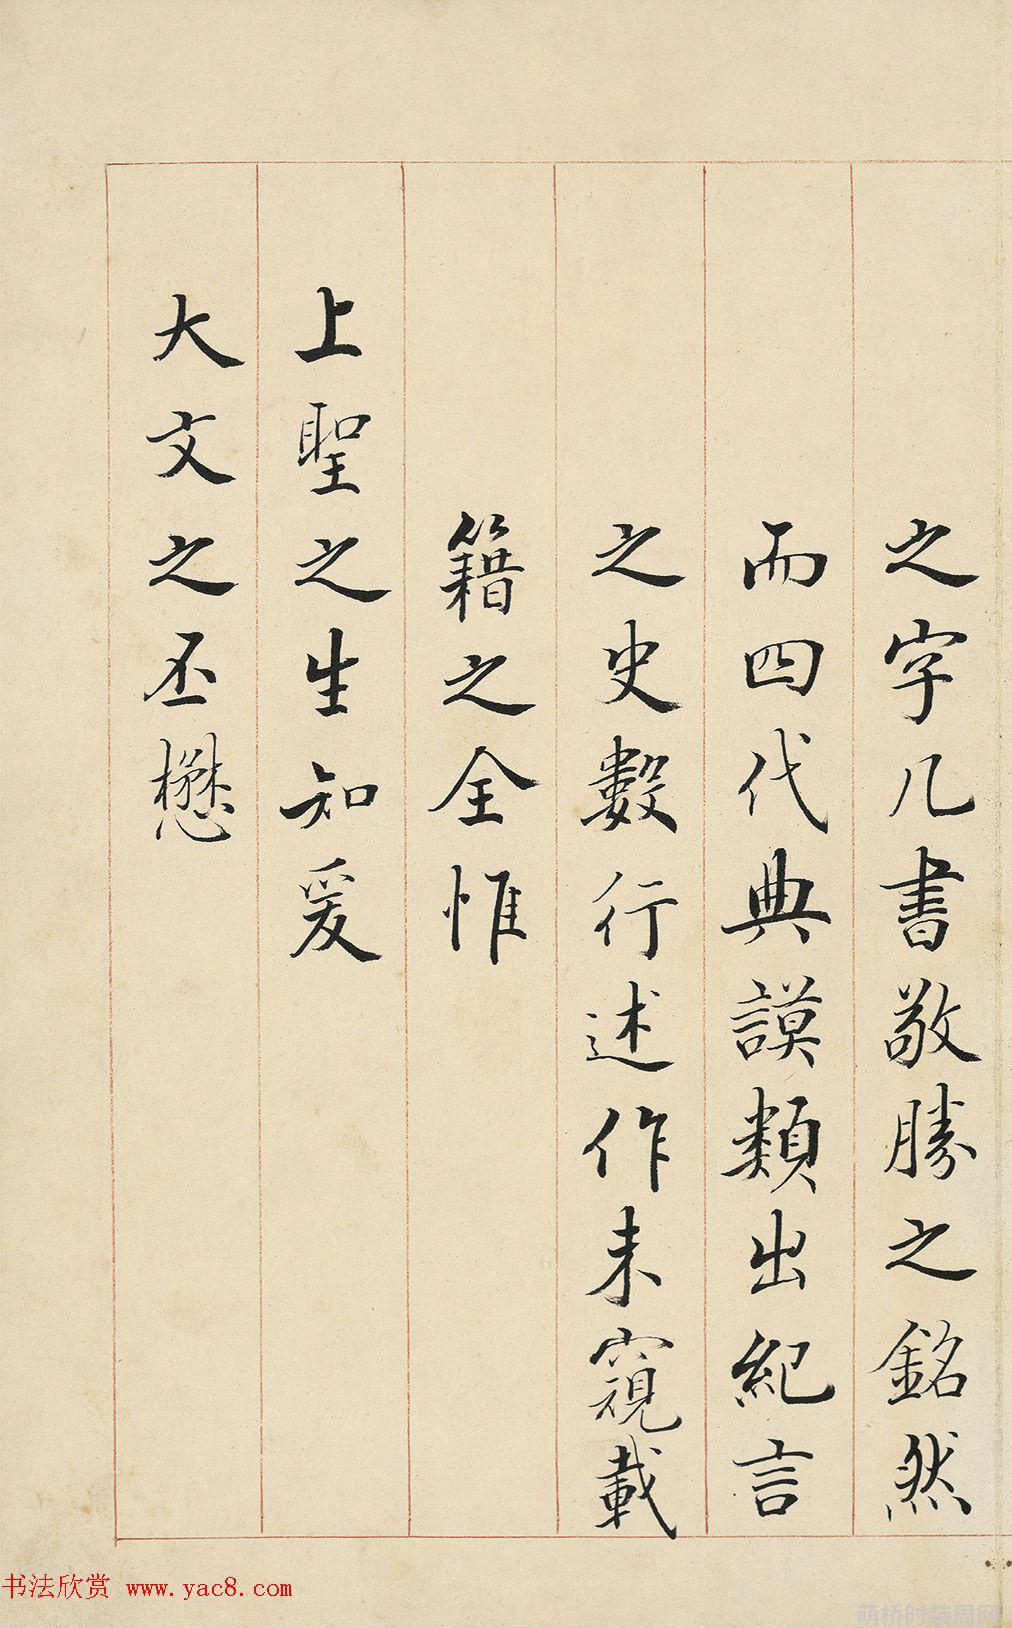 之字几書敬勝之銘然
而四代典謨類出紀言
之史數行述作未窺載
籍之全惟
上聖之生知爰
大文之丕懋
书法欣赏 www.yac8.com
萌桥时装周网